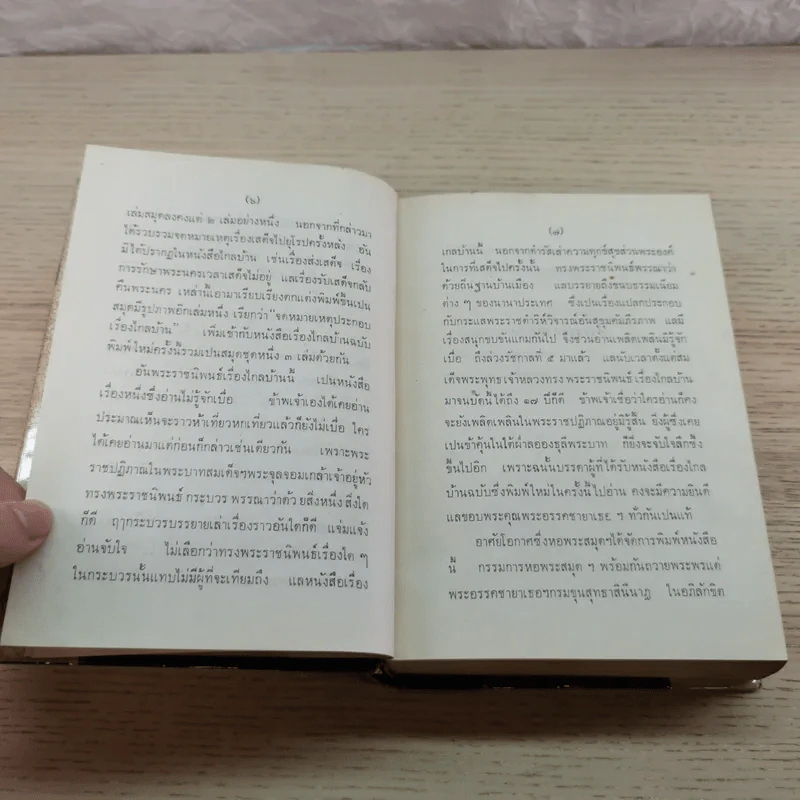 (๖)
เล่มสมุดลงคงแต่ ๒ เล่มอย่างหนึ่ง นอกจากที่กล่าวมา
ได้รวบรวมจดหมายเหตุเรื่องเสด็จไปยุโรปครั้งหลัง อัน
มิได้ปรากฏในหนังสือไกลบ้าน เช่นเรื่องส่งเสด็จ เรื่อง
การรักษาพระนครเวลาเสด็จไม่อยู่ แลเรื่องรับเสด็จกลับ
คืนพระนคร เหล่านี้เอามาเรียบเรียงตกแต่งพิมพ์ขึ้นเปน
สมุดมีรูปภาพอีกเล่มหนึ่ง เรียกว่า "จดหมายเหตุประกอบ
เรื่องไกลบ้าน" เพิ่มเข้ากับหนังสือเรื่องไกลบ้านฉบับ
พิมพ์ใหม่ครั้งนี้รวมเปนสมุดชุดหนึ่ง ๓ เล่มด้วยกัน
อันพระราชนิพนธ์เรื่องไกลบ้านนี้ เปนหนังสือ
เรื่องหนึ่งซึ่งอ่านไม่รู้จักเบื่อ ข้าพเจ้าเองได้เคยอ่าน
ประมาณเห็นจะราวห้าเที่ยวหกเที่ยวแล้วก็ยังไม่เบื่อ ใคร
ได้เคยอ่านมาแต่ก่อนก็กล่าวเช่นเดียวกัน เพราะพระ
ราชปฏิภาณในพระบาทสมเด็จฯพระจุลจอมเกล้าเจ้าอยู่หัว
ทรงพระราชนิพนธ์ กระบวร พรรณาว่าด้วยสิ่งหนึ่งสิ่งใด
ก็ดี ฤๅกระบวรบรรยายเล่าเรื่องราวอันใดก็ดี แจ่มแจ้ง
อ่านจับใจ ไม่เลือกว่าทรงพระราชนิพนธ์เรื่องใด ๆ
ในกระบวรนั้นแทบไม่มีผู้ที่จะเทียมถึง แลหนังสือเรื่อง
(๗)
ไกลบ้านนี้ นอกจากดำรัสเล่าความทุกข์สุขส่วนพระองค์
ในการที่เสด็จไปครั้งนั้น ทรงพระราชนิพนธ์พรรณาว่า
ด้วยถิ่นฐานบ้านเมือง แลบรรยายถึงขนบธรรมเนียม
ต่าง ๆ ของนานาประเทศ ซึ่งเปนเรื่องแปลกประกอบ
กับกระแสพระราชดำริห์วิจารณ์อันสุขุมคัมภีรภาพ แลมี
เรื่องสนุกขบขันแกมกันไป จึงชวนอ่านเพลิดเพลินมิรู้จัก
เบื่อ ถึงล่วงรัชกาลที่ ๕ มาแล้ว แลนับเวลาตั้งแต่สม
เด็จพระพุทธเจ้าหลวงทรง พระราชนิพนธ์ เรื่องไกลบ้าน
มาจนปีดนี้ได้ถึง ๑๗ ปีก็ดี ข้าพเจ้าเชื่อว่าใครอ่านก็คง
จะยังเพลิดเพลินในพระราชปฏิภาณอยู่มิรู้สิ้น ยิ่งผู้ซึ่งเคย
เปนข้าคุ้นใต้ฝ่าลอองธุลีพระบาท ก็ยิ่งจะจับใจลึกซึ้ง
ขึ้นไปอีก เพราะฉนั้นบรรดาผู้ที่ได้รับหนังสือเรื่องไกล
บ้านฉบับซึ่งพิมพ์ใหม่ในครั้งนี้ไปอ่าน คงจะมีความยินดี
แลขอบพระคุณพระอรรคชายาเธอ ฯ ทั่วกันเปนแท้
อาศัยโอกาศซึ่งหอพระสมุดฯได้จัดการพิมพ์หนังสือ
นี้ กรรมการหอพระสมุด ฯ พร้อมกันถวายพระพรแด่
พระอรรคชายาเธอฯกรมขุนสุทธาสินีนาฏ ในอภิลักขิต